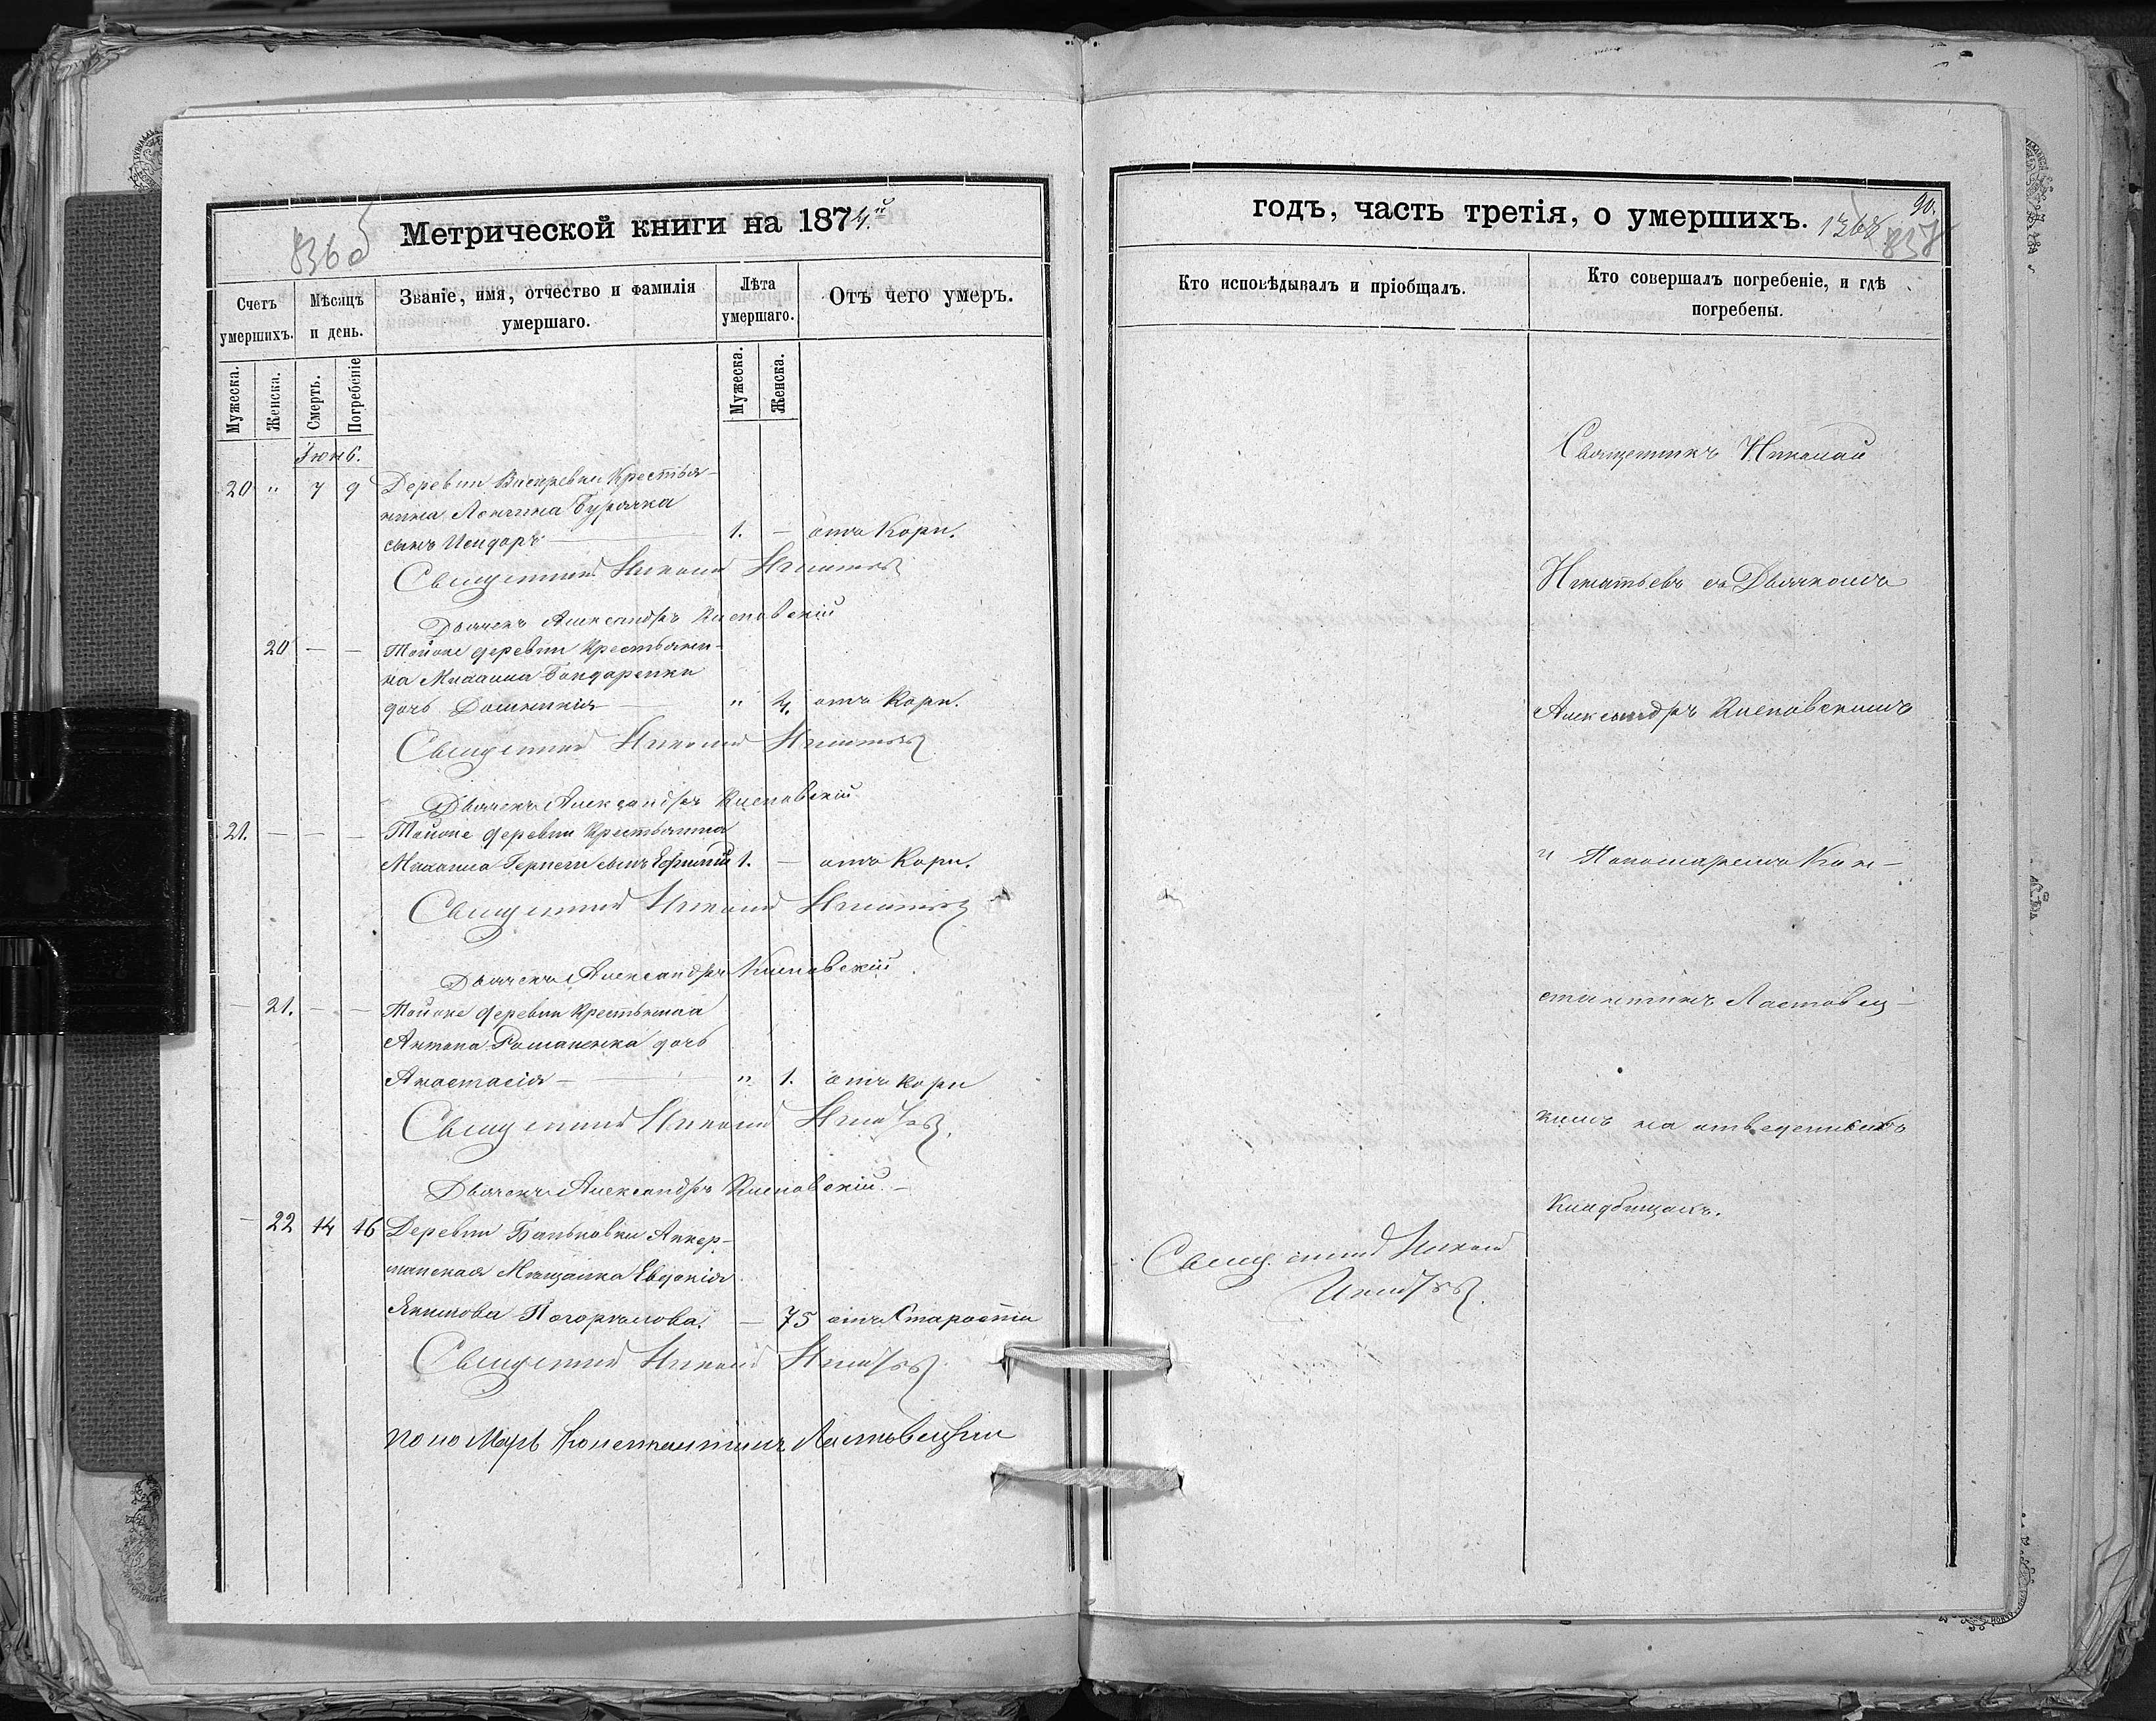 Метрической книги на 1874й
836 об
Счетъ умершихъ.
Мѣсяцъ и день.
Званіе, имя, отчество и фамилія умершаго.
Лѣта умершаго.
Отъ чего умеръ.
Мужеска.
Женска.
Смерть.
Погребеніе
Мужеска.
Женска.
Іюнь.
20 " 7 9 Деревни Крестья-
нина Логгина Бурячка
сынъ Исидоръ 1. — отъ Кори.
Священникъ Николай Игнатьевъ
Дьячекъ Александръ Кисновскій
20 — — Тойоже деревни Крестьяни-
на Михаила Бондаренки
дочь Домникія " 4. отъ Кори.
Священникъ Николай Игнатьевъ
Дьячекъ Александръ Кисновскій
21. — — — Тойоже деревни Крестьянина
Михаила сынъ Ефимій 1. — отъ Кори.
Священникъ Николай Игнатьевъ
Дьячекъ Александръ Кисновскій
— 21. — — Тойоже деревни Крестьянина
Антона Романенка дочь
Анастасія — " 1. отъ кори
Священникъ Николай Игнатьевъ.
Дьячекъ Александръ Кисновскій. —
— 22 14 16 Деревни Баньковки Аккер-
манская Мѣщанка Евдокія
Якимова Погорѣлова. — 75 отъ Старости
Священникъ Николай Игнатьевъ.
пономарь Константинъ Ластовецкій
годъ, часть третія, о умершихъ.
90.
837
Кто исповѣдывалъ и пріобщалъ.
Кто совершалъ погребеніе, и гдѣ погребены.
Священникъ Николай
Игнатьевъ съ Дьячкомъ
Александръ Кисновскимъ
и Пономаремъ Кон-
стантинъ Ластовец-
кимъ на отведенномъ
Кладбищахъ.
Священникъ Николай
Игнатьевъ.